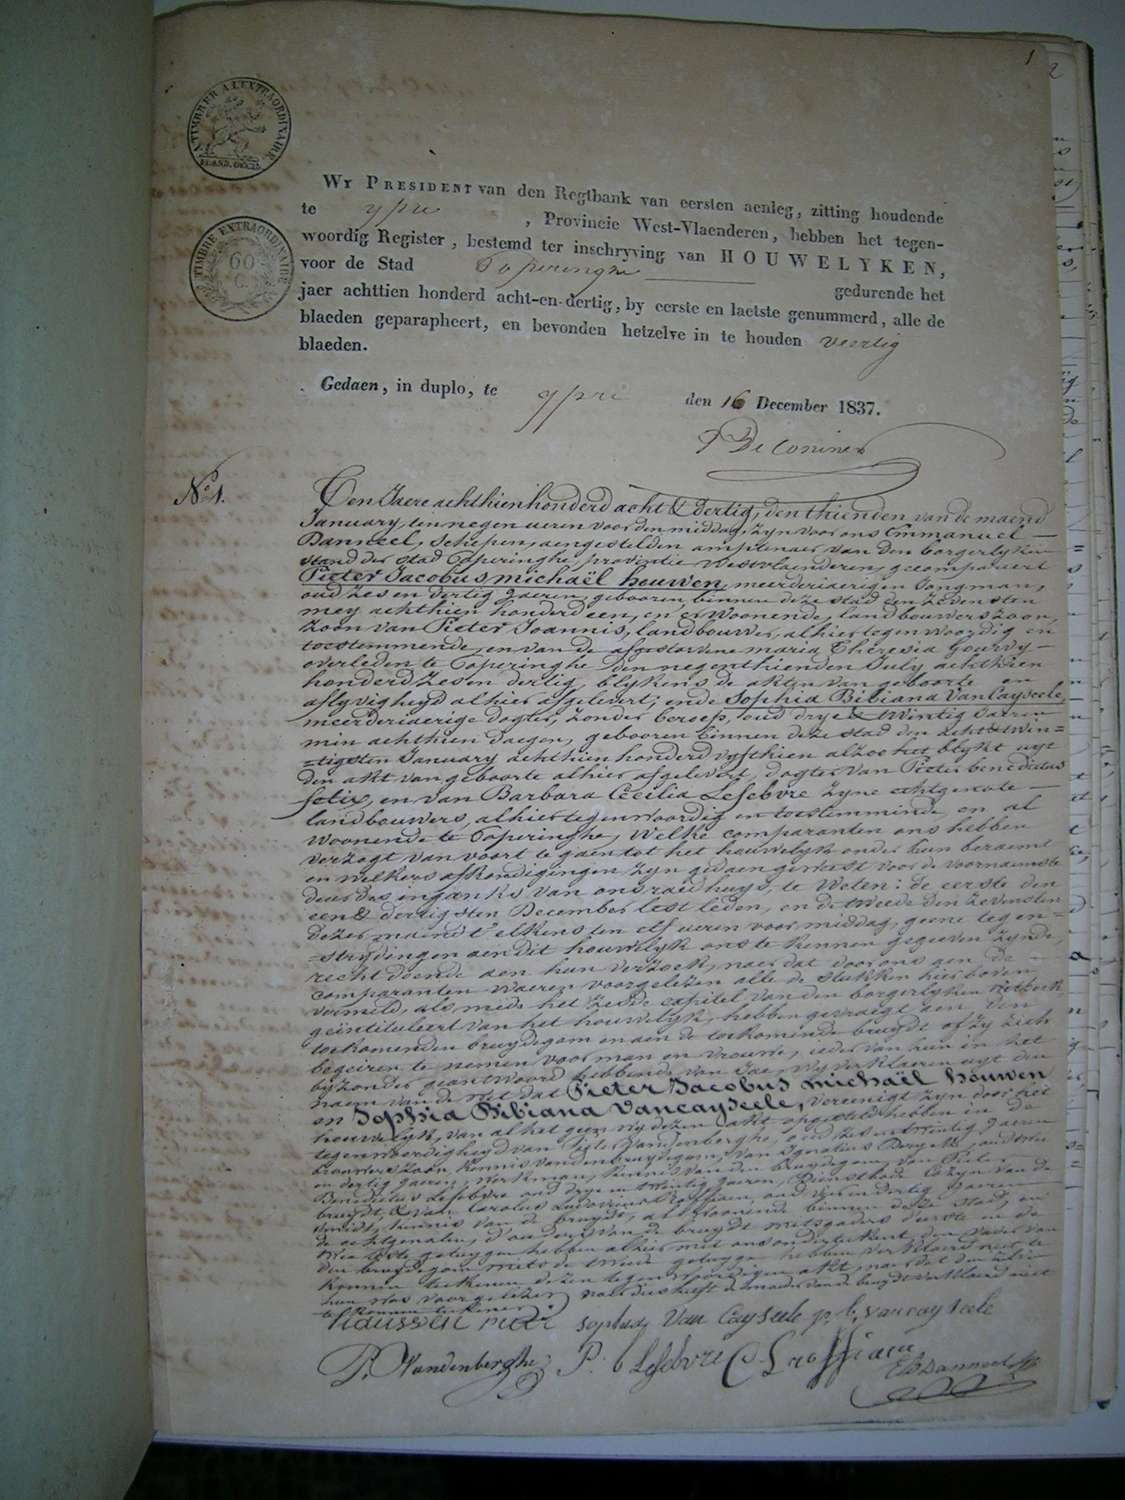 1
2
A TIMBRER A L'EXTRAORDINAIRE
FLAND. OCC.
TIMBRE EXTRAORDINAIRE
60
C.
WY PRESIDENT van den Regtbank van eersten aenleg, zitting houdende
te ypre, Provincie West-Vlaenderen, hebben het tegen-
woordig Register, bestemd ter inschryving van HOUWELYKEN,
voor de Stad Poperinghe gedurende het
jaer achttien honderd acht-en-dertig, by eerste en laetste genummerd, alle de
blaeden geparapheert, en bevonden hetzelve in te houden veertig
blaeden.
Gedaen, in duplo, te ypre den 16 December 1837.
De Coninck
No 1.
Den Jaere achthien honderd acht & dertig, den thienden van de maend
January, ten negen ueren voor den middag, zyn voor ons Emmanuel
Banneel, schepen, aengestelden amptenaer van den borgerlyken
stand der stad Poperinghe, provintie Westvlaenderen, gecompareert
Pieter Jacobus michaël houwen, meerderjaerigen Jongman,
oud zes en dertig Jaeren, gebooren binnen deze stad den zevensten
mey achthien honderd een, en er woonende, landbouwers zoon,
zoon van Pieter Joannis, landbouwer, alhier tegenwoordig en
toestemmende, en van de afgestorvene maria Theresia Gourdy
overleden te Poperinghe den negenthienden July achthien
honderd zes en dertig, blykens de akten van geboorte en
aflyvigheyd alhier afgelevert; ende Sophia Bibiana VanCayseele,
meerderjaerige dogter, zonder beroep, oud drye & twintig Jaeren
min achthien daegen, gebooren binnen deze stad den acht & twin-
=tigsten January achthien honderd vyfthien alzoo het blykt uyt
den akt van geboorte alhier afgelevert, dogter van Pieter benedictus
felix, en van Barbara Cecilia Lefebvre zyne echtgenote
landbouwers, alhier tegenwoordig en toestemmende, en al
woonende te Poperinghe, welke comparanten ons hebben
verzogt van voort te gaen tot het houwelyk onder hun beraemt
en welkers afkondigingen zyn gedaen geweest voor de voornaemste
deur des ingangs van ons raedhuys, te weten: de eerste den
een & dertigsten December lest leden, en de tweede den zevensten
dezer maend t'elkens ten elf ueren voor middag, geene tegen=
=strydingen aen dit houwelyk ons te kennen gegeven zynde,
recht doende aen hun verzoek, naer dat door ons aen de
comparanten waeren voorgelezen alle de stukken hier boven
vermeld, als mede het zesde capitel van den borgerlyken wetboek
geintituleert van het houwelyk, hebben gevraegt aen den
toekomenden bruydegom en aen de toekomende bruydt of zy zich
begeiren te nemen voor man en vrouwe, ieder van hun in het
byzonder geantwoord hebbende van Jae, wy verklaeren uyt den
naem van de wet dat Pieter Jacobus michaël houwen
en Sophia Bibiana Vancayseele, vereenigt zyn door het
houwelyk, van al het geen wy dezen akt opgesteld hebben in de
tegenwoordigheyd van Pieter Vandenberghe, oud zes en twintig Jaeren
brouwers zoon, kennis van den bruydegom, van Ignatius
en dertig Jaeren, werkman, kennis van den bruydegom, van Pieter
Benedictus Lefebvre oud drye en twintig Jaeren, cozyn van de
bruydt, & van Carolus Ludovicus oud vier en dertig Jaeren
smidt, kennis van de bruydt, al woonende binnen deze stad, en
de echtgenoten, d'ouders van de bruydt mitsgaders d'eerste en de
twee leste getuygen hebben alhier met ons onderteekent, den vader van
den bruydegom mits de tweede getuyge hebben verklaerd niet te
konnen teekenen dezen tegenwoordigen akt, naer dat den zelven
hun was voorgelezen de moeder van de bruydt verklaerd niet
te konnen teekenen
sophia Van Cayseele p. b. vancayseele
P. Vandenberghe P. b Lefebvre